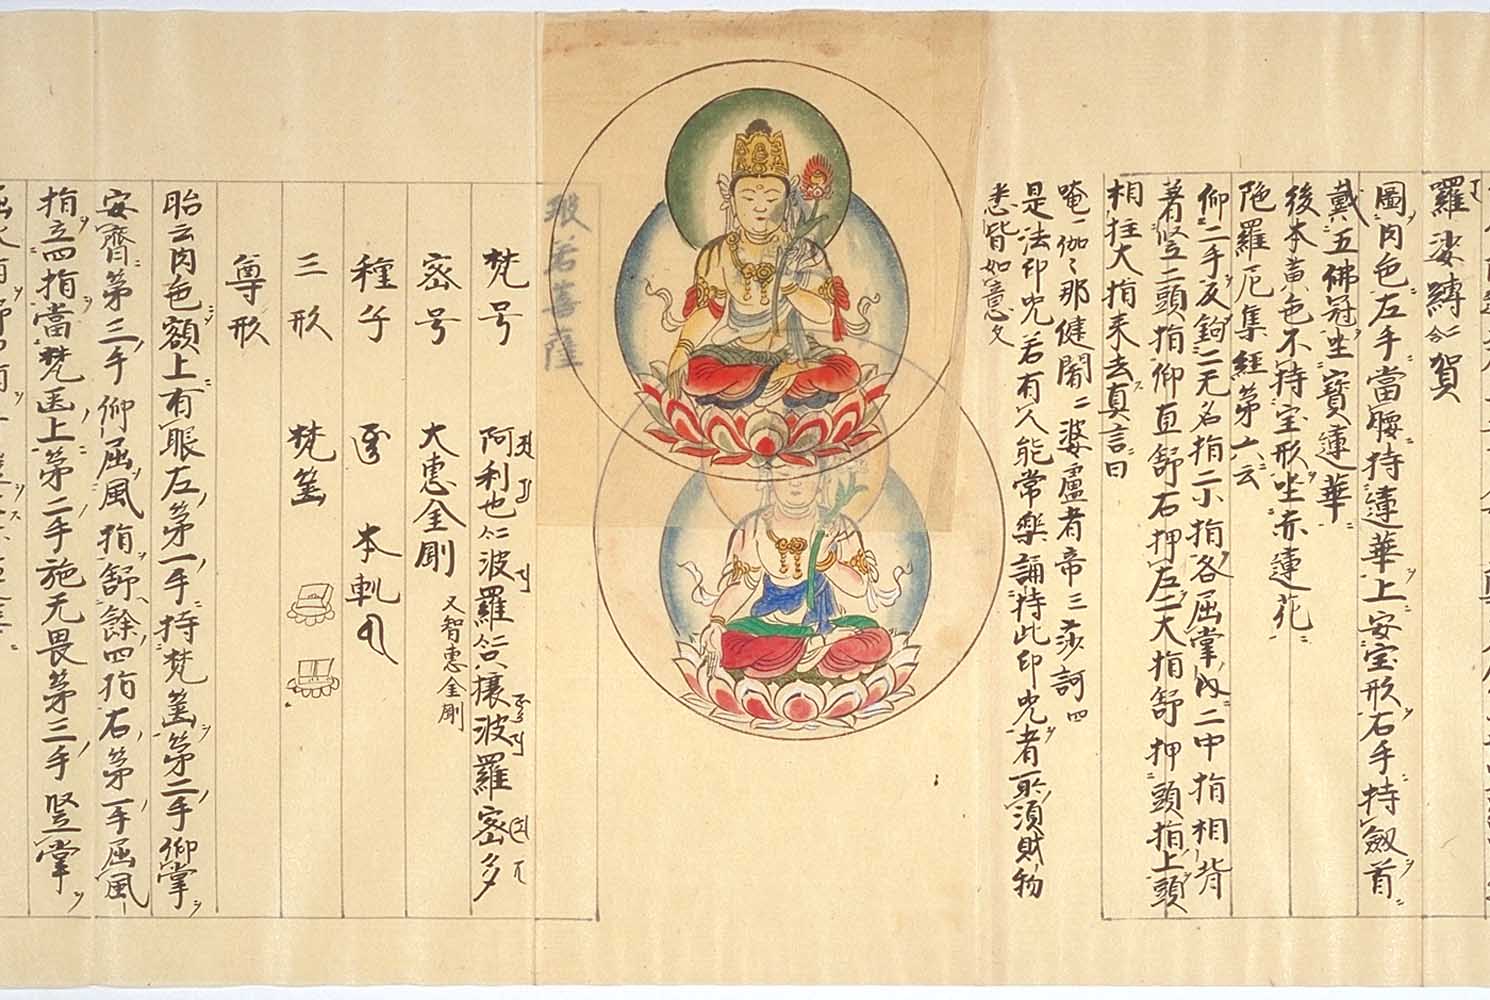 羅娑縛二合賀
圖肉色左手當腰持蓮華上安宝形右手持劔首
戴五佛冠坐寳蓮華
後本黄色不持宝形坐赤蓮花
陁羅尼集經第六云
仰二手反鉤二无名指二小指各屈掌內二中指相背
著竪二頭指仰直舒右押左二大指舒押頭指上頭
相拄大指来去真言曰
唵一伽〻那健闍二婆盧者帝三莎訶四
是法印咒若有人能常樂誦持此印咒者所須財物
悉皆如意文
般若菩薩
梵号 阿利也二合波羅二合攘波羅密多
密号 大惠金剛 又智惠金剛
種子 本軌
三形 梵莁
尊形
胎云肉色額上有眼左第一手持梵莁第二手仰掌
安齊第三手仰屈風指舒餘四指右第一手屈風
指立四指當梵莁上第二手施无畏第三手竪掌